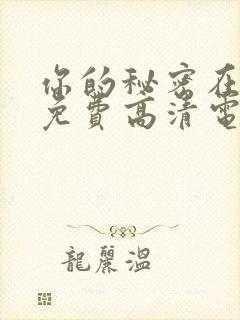 你的秘密在
免費高清電
龍麗溫